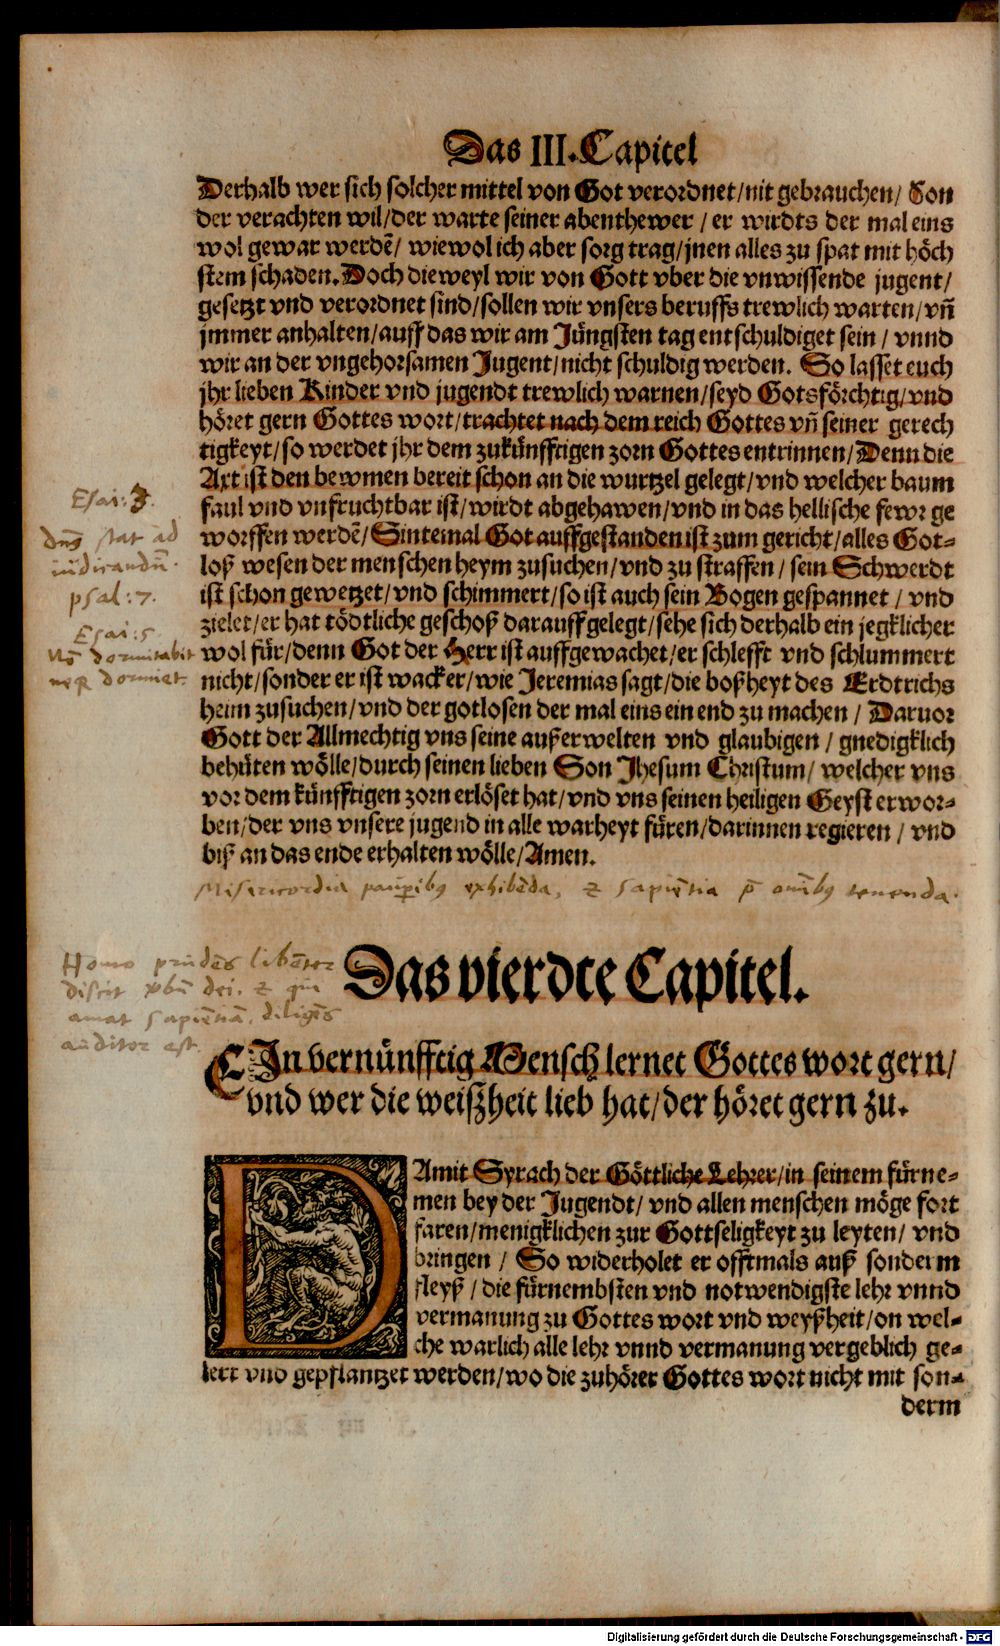 Das III. Capitel
Derhalb wer sich solcher mittel von Got verordnet/nit gebrauchen/ Son
der verachten wil/der warte seiner abenthewer / er wirdts der mal eins
wol gewar werdẽ/ wiewol ich aber sorg trag/jnen alles zu spat mit höch
stem schaden. Doch dieweyl wir von Gott vber die vnwissende jugent/
gesetzt vnd verordnet sind/sollen wir vnsers beruffs trewlich warten/vñ
jmmer anhalten/auff das wir am Jüngsten tag entschuldiget sein / vnnd
wir an der vngehorsamen Jugent/nicht schuldig werden. So lasset euch
jhr lieben Kinder vnd jugendt trewlich warnen/seyd Gotsförchtig/vnd
höret gern Gottes wort/trachtet nach dem reich Gottes vñ seiner gerech
tigkeyt/so werdet jhr dem zukünfftigen zorn Gottes entrinnen/Denn die
Axt ist den bewmen bereit schon an die wurtzel gelegt/vnd welcher baum
faul vnd vnfruchtbar ist/wirdt abgehawen/vnd in das hellische fewr ge
worffen werdẽ/Sintemal Got auffgestanden ist zum gericht/alles Got-
loß wesen der menschen heym zusuchen/vnd zu straffen / sein Schwerdt
ist schon gewetzet/vnd schimmert/so ist auch sein Bogen gespannet / vnd
zielet/er hat tödtliche geschoß darauff gelegt/sehe sich derhalb ein jegklicher
wol für/denn Got der Herr ist auffgewachet/er schlefft vnd schlummert
nicht/sonder er ist wacker/wie Jeremias sagt/die boßheyt des Erdtrichs
heim zusuchen/vnd der gotlosen der mal eins ein end zu machen / Daruor
Gott der Allmechtig vns seine außerwelten vnd glaubigen / gnedigklich
behüten wölle/durch seinen lieben Son Jhesum Christum/ welcher vns
vor dem künfftigen zorn erlöset hat/vnd vns seinen heiligen Geyst erwor-
ben/der vns vnsere jugend in alle warheyt füren/darinnen regieren / vnd
biß an das ende erhalten wölle/Amen.
Esai: 3.
dn̄s stat ad
iudicandū.
psal: 7.
Esai: 5.
nō dormitabit
neq dormiet.
Misericordia paupibus exhibēda, & sapiētia p̄ omībus tenenda.
Homo prudēs libēter
discit vbū dei. & qui
amat sapiētiā, diligēs
auditor est.
Das vierdte Capitel.
EIn vernünfftig Mensch lernet Gottes wort gern/
vnd wer die weißheit lieb hat/der höret gern zu.
DAmit Syrach der Göttliche Lehrer/in seinem fürne-
men bey der Jugendt/ vnd allen menschen möge fort
faren/menigklichen zur Gottseligkeyt zu leyten/ vnd
bringen / So widerholet er offtmals auß sonderm
fleyß / die fürnembsten vnd notwendigste lehr vnnd
vermanung zu Gottes wort vnd weyßheit/on wel-
che warlich alle lehr vnnd vermanung vergeblich ge-
lert vnd gepflantzet werden/wo die zuhörer Gottes wort nicht mit son-
derm
Digitalisierung gefördert durch die Deutsche Forschungsgemeinschaft - DFG